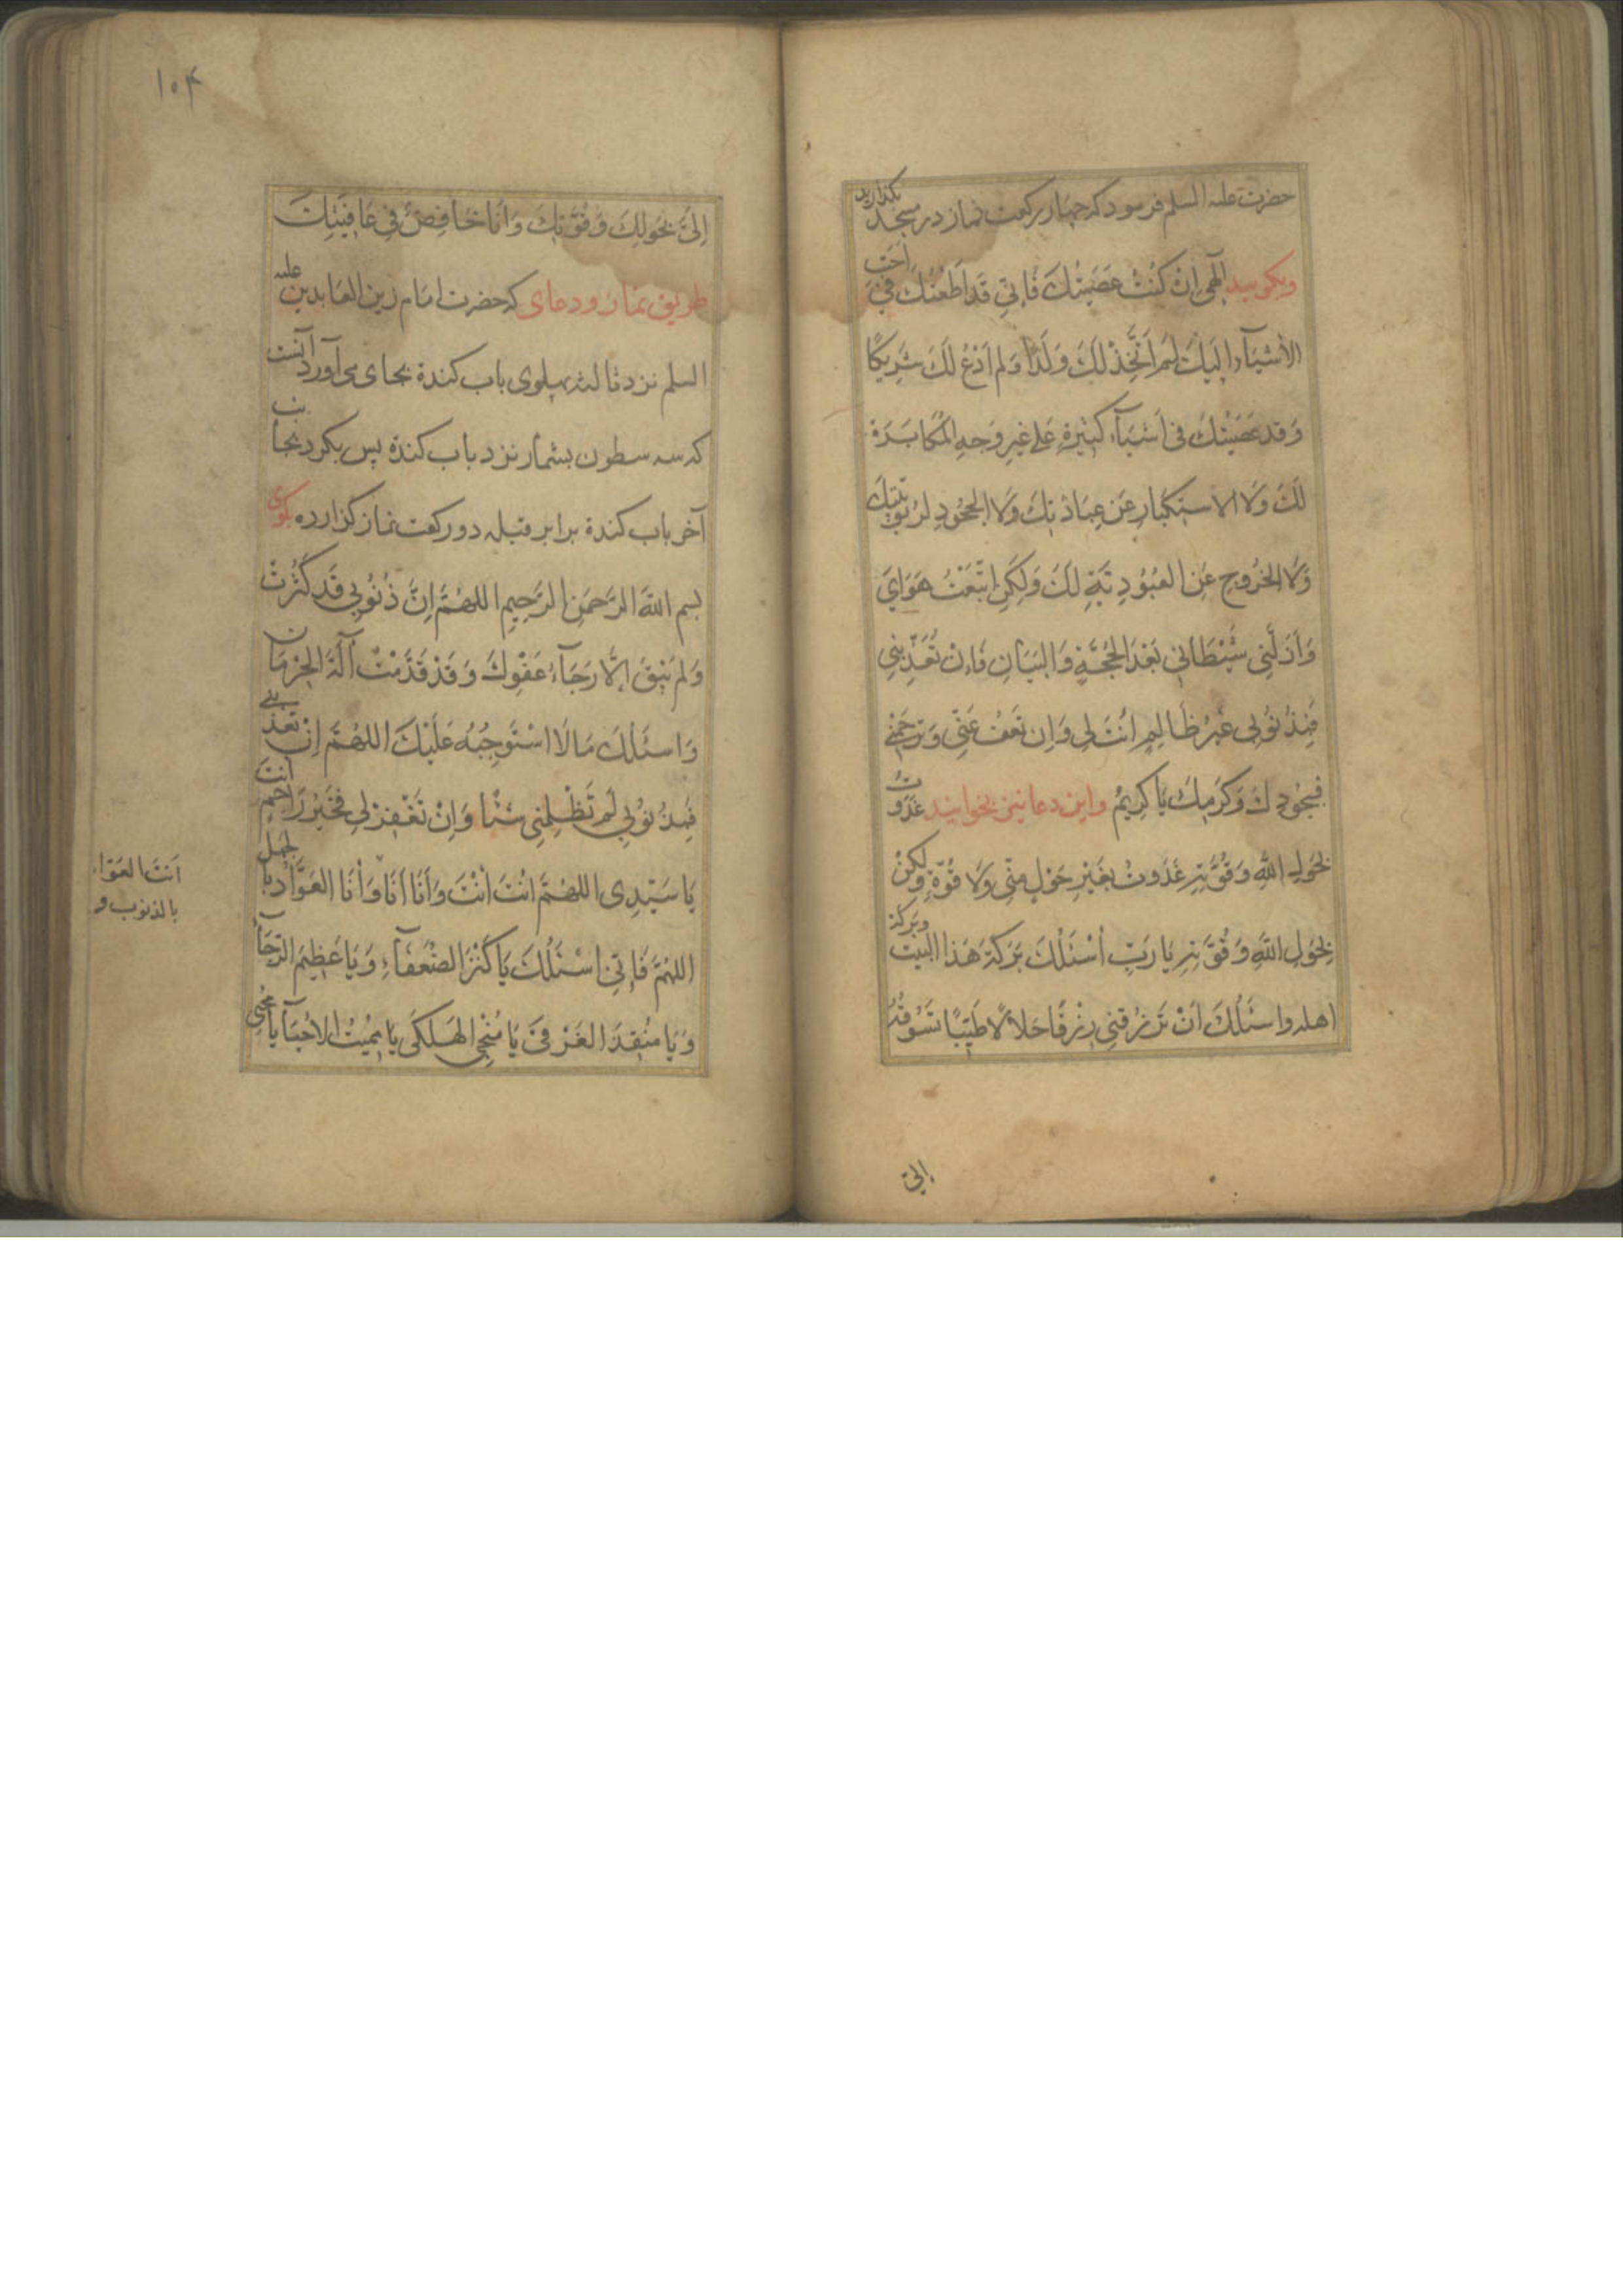 حضرت علیه السلم فرمود که چهار رکعت نماز در مسجد بگذارید
وبگویید الهی ان کُنتُ عَصَیتُكَ فَاِنّی قَد اَطَعتُكَ فی اَحَبّ
الأشیآء الَیكَ لَم اَتَّخِذ لَكَ وَلَدًا وَلم اَدْعُ لَكَ شَرِیكًا
وَقد عَصَیتُكَ فی اَشیَآء کَثیرَةٍ عَلی غیرِ وَجهِ المُكابَرَة
لَكَ وَلَا الاستِکبارِ عَن عِبَادَتِكَ وَلَا الجُحُودِ لرُبُوبیّتِكَ
وَلَا الخُروجِ عَنِ العُبُودِیَّةِ لَكَ وَلَکِنِ اتَّبَعْتُ هَوَایَ
وَأَزَلَّنِی شَیْطَانِی بَعْدَ الحُجَّةِ وَالبَیَانِ فَاِن تُعَذِّبنِی
فَبِذُنُوبِی غَیرُ ظَالِمٍ اَنتَ لِی وَاِن تَعفُ عَنّی وَتَرحَمنِی
فَبِجُودِكَ وَکَرَمِكَ یَا کَرِیمُ واین دعا نیز بخوانید غَدَوتُ
بِحَولِ اللهِ وَقُوَّتِهِ غَدَوتُ بِغَیْرِ حَوْلٍ مِنّی وَلَا قُوَّةٍ وَلکِنْ
بِحَولِ اللهِ وَقُوَّتِهِ یَا رَبِّ أَسْئَلُكَ بَرَکَةَ هَذَا البَیتِ وبَرَکَة
اهله واسئَلُكَ اَنْ تَرْزُقَنِی رِزْقًا حَلَالًا طَیِّبًا تَسُوقُهُ
إلیّ
١٠٤
اِلیَّ بِحَولِكَ وَقُوَّتِكَ وَاَنَا خَافِضٌ فِی عَافِیَتِكَ
طریق نماز ودعای که حضرت امَام زین العَابدین علیه
السلم نزد ثالثه پهلوی باب کندة بجای می آورد آنست
که سه سطون بشمار نزد باب کندة پس بکرد بجانب
آخر باب کندة برابر قبله دو رکعت نماز کزارده بکوی
بسم اللهِ الرَّحمَنِ الرَّحِیمِ اللهُمَّ اِنَّ ذُنُوبِی قَد کَثُرَتْ
وَلَم یَبْقَ اِلَّا رَجَآءُ عَفْوِكَ وَقَدْ قَدَّمْتُ آلَةَ الحِرْمَانِ
وَاسئَلُكَ مَا لَا اسْتَوجِبُهُ عَلَیْكَ اللهُمَّ اِنْ تعذبنی
فَبِذُنُوبِی لَم تَظْلِمنِی شَیْئًا وَاِنْ تَغْفِرْ لِی فَخَیرُ رَاحِمٍ اَنتَ
یَا سَیِّدِی اللهُمَّ انتَ اَنْتَ وَاَنَا اَنَا وَأَنَا العَوَّادُ بالجهل
اللهُمَّ فَاِنّی اسْئَلُكَ یَا کَنزَ الضُّعَفَآءِ وَیَا عَظِیمَ الرَّجَآءِ
وَیَا مُنقِذَ الغَرْقَی یَا مُنْجِی الهَلْکَی یَا مُمِیتَ الاَحْیَآء یَا مُحْیِی
اَنتَ العَوّاد
بالذنوب و